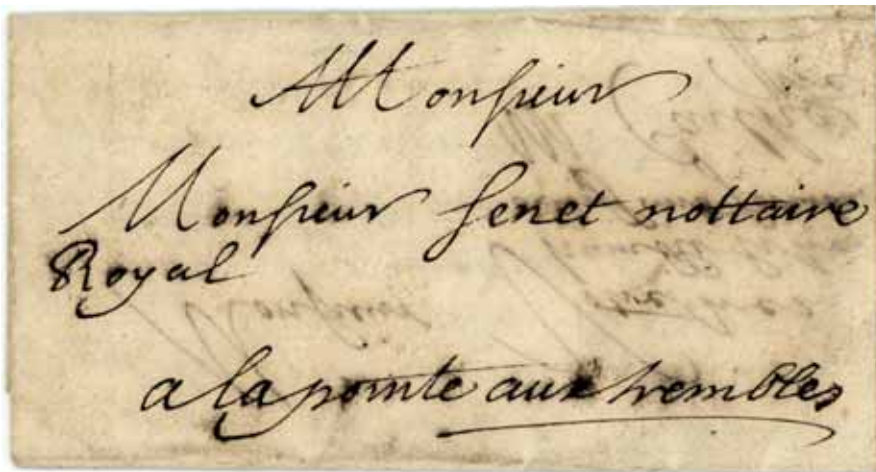 A Monsieur
Monsieur Senet nottaire
Royal
a la pointe aux trembles